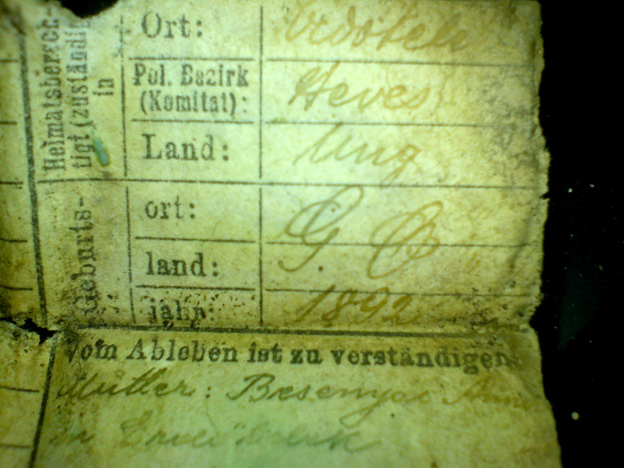 Heimatsberech-
tigt (zuständig
in
Ort:
Pol. Bezirk
(Komitat): Heves
Land: Ung
Geburts-
ort:
land: G. C
jahr: 1892
Vom Ableben ist zu verständigen
Mutter: Besenyei
in